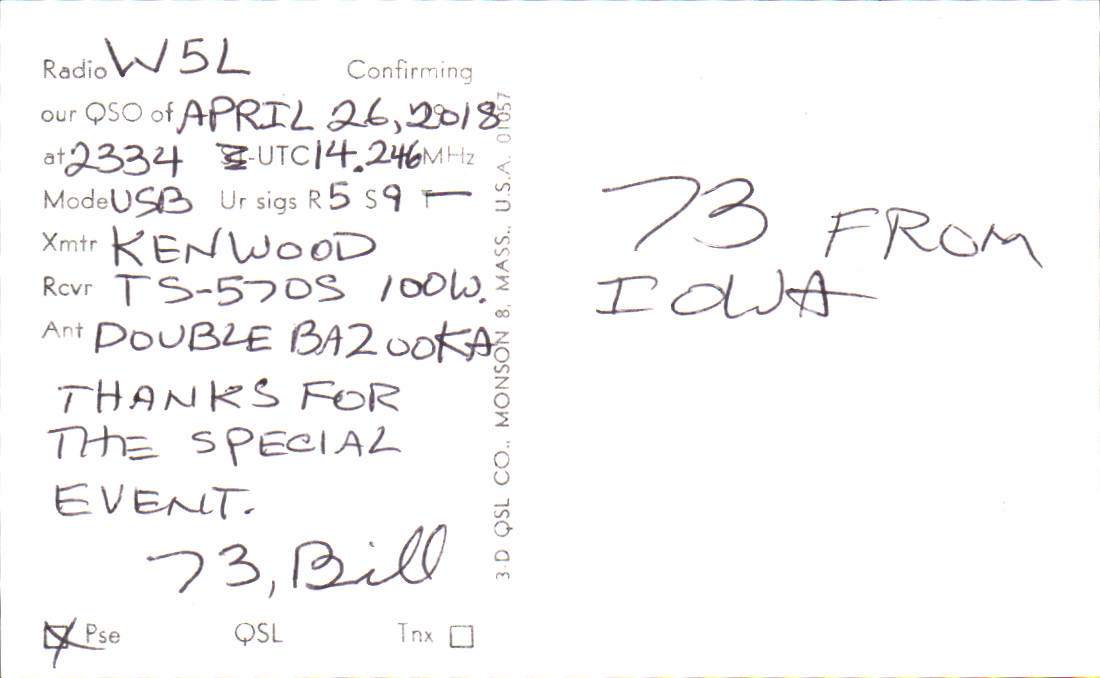 Radio W5L Confirming
our QSO of APRIL 26, 2018
at 2334 -UTC 14.246 MHz
Mode USB Ur sigs R 5 S 9 T —
Xmtr KENWOOD
Rcvr TS-570S 100W.
Ant DOUBLE BAZOOKA
THANKS FOR
THE SPECIAL
EVENT.
73, Bill
Pse QSL Tnx
3-D QSL CO., MONSON 8, MASS., U.S.A. 01057
73 FROM
IOWA